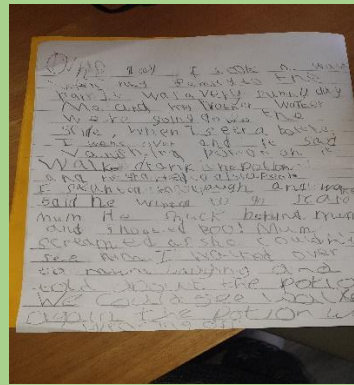 One day I took a walk
with my family to the
park it was a very sunny day
Me and my brother Walker
were going down the
slide, when I seen a bottle
I went over and it said
Vanishing potion on it
Walker drank the potion
and started to disappear
I started to laugh and
said he wanted to scare
mum He snuck behind mum
and shouted BOO! Mum
screamed as she couldn't
see him I walked over
to mum laughing and
told about the potion
We could see
again the potion